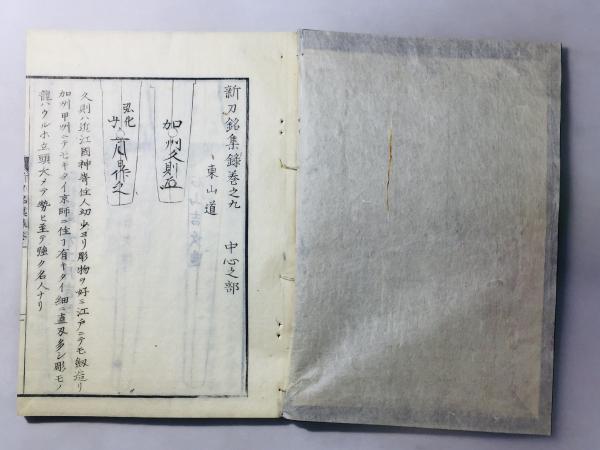 新刀銘集録巻之九
、東山道　中心之部
加州久則五
弘化
久則ハ近江國神嵜住人幼少ヨリ彫物ヲ好ミ江戸ニテモ鍛造リ
加州甲州ニテモキタイ京師ニ住丁有キタイ細ニ直刃多シ彫モノ
龍ハウルホ立頭大メテ勢ヒ至テ強ク名人ナリ